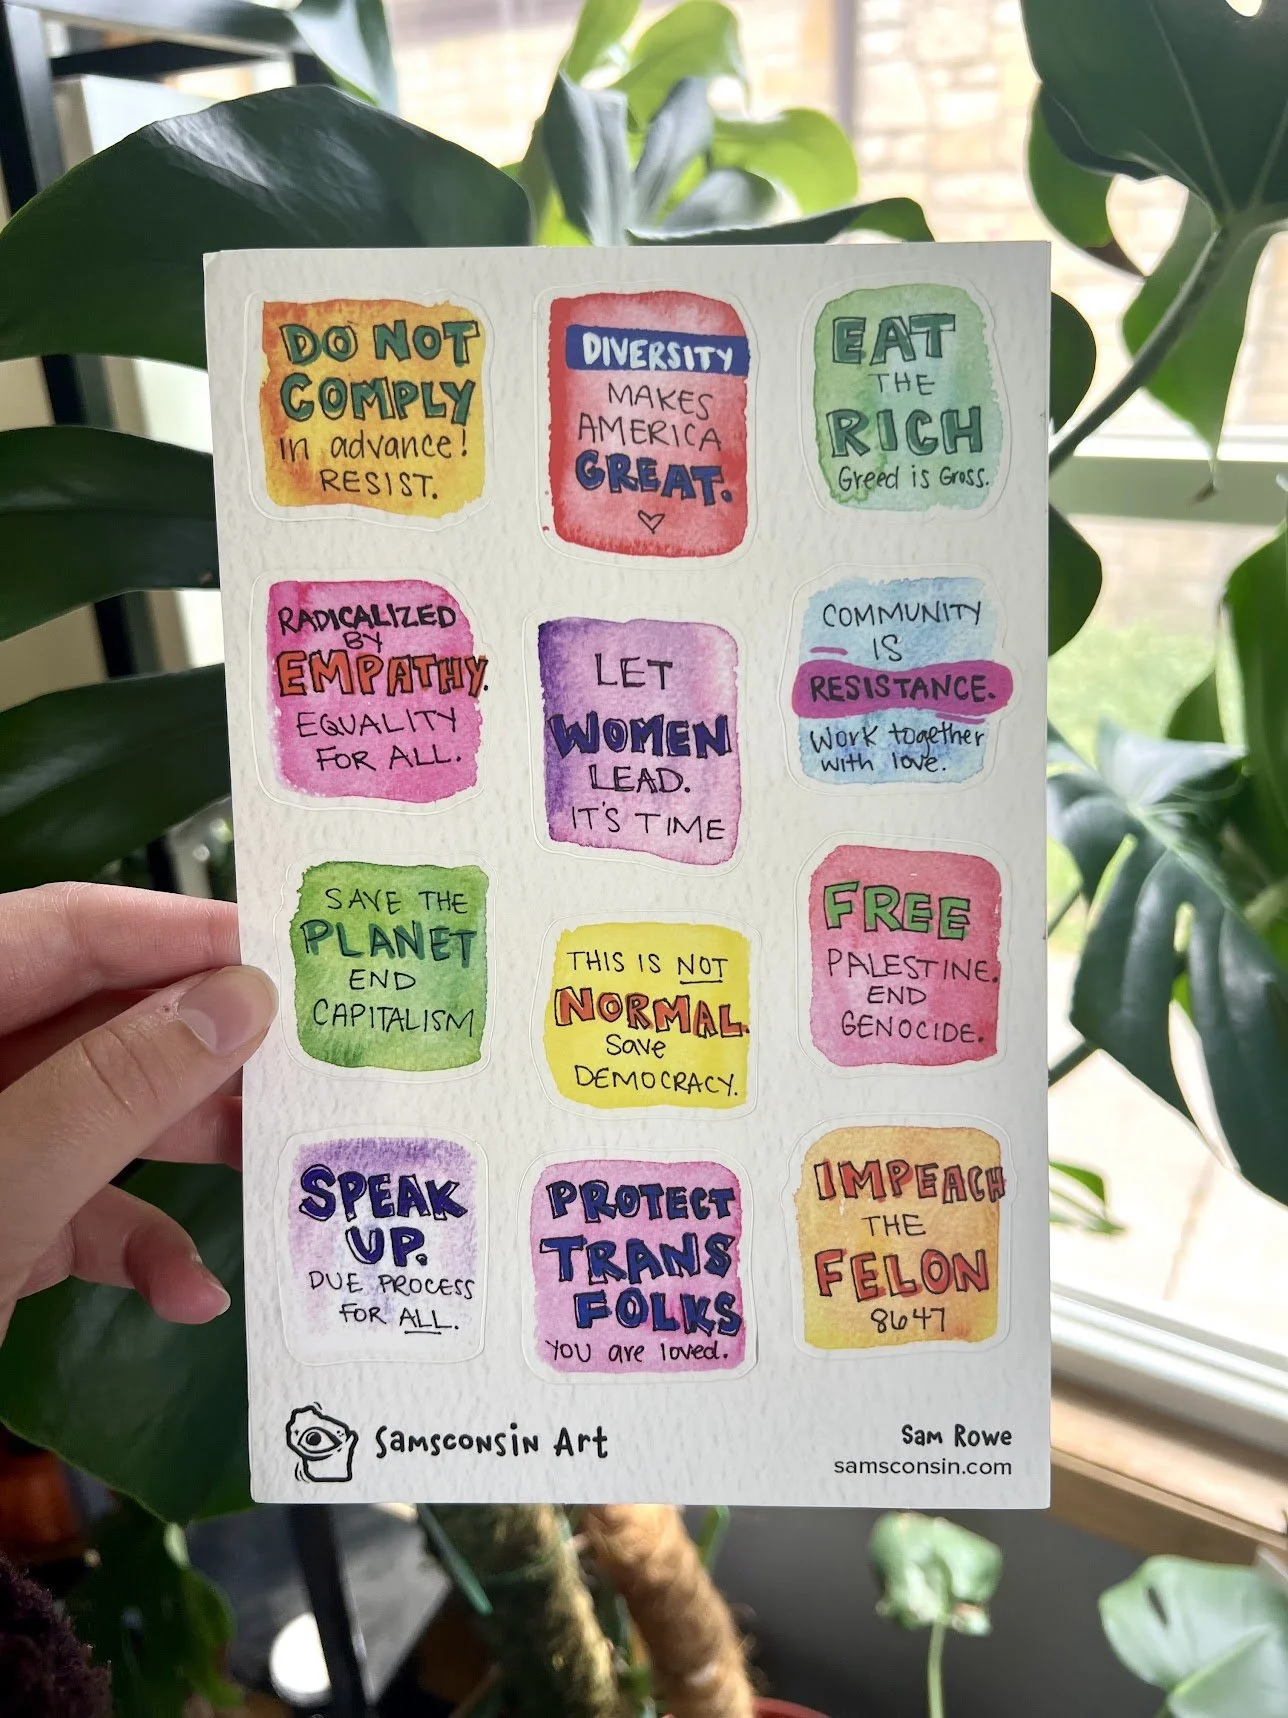 DO NOT
COMPLY
in advance!
RESIST.
DIVERSITY
MAKES
AMERICA
GREAT.
EAT
THE
RICH
Greed is Gross.
RADICALIZED
BY
EMPATHY.
EQUALITY
FOR ALL.
LET
WOMEN
LEAD.
IT'S TIME
COMMUNITY
IS
RESISTANCE.
Work together
with love.
SAVE THE
PLANET
END
CAPITALISM
THIS IS NOT
NORMAL.
Save
DEMOCRACY.
FREE
PALESTINE.
END
GENOCIDE.
SPEAK
UP.
DUE PROCESS
FOR ALL.
PROTECT
TRANS
FOLKS
YOU are loved.
IMPEACH
THE
FELON
8647
Samsconsin Art
Sam Rowe
samsconsin.com